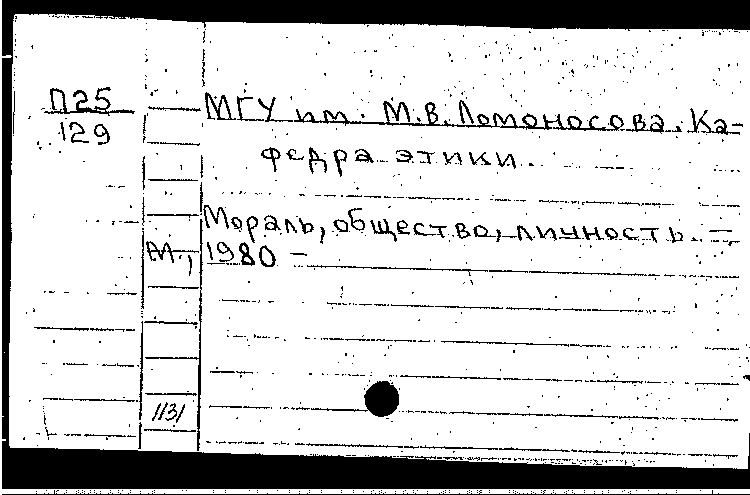 П25
129
МГУ им. М.В. Ломоносова. Ка-
федра этики.
Мораль, общество, личность. –
М., 1980 –
1131